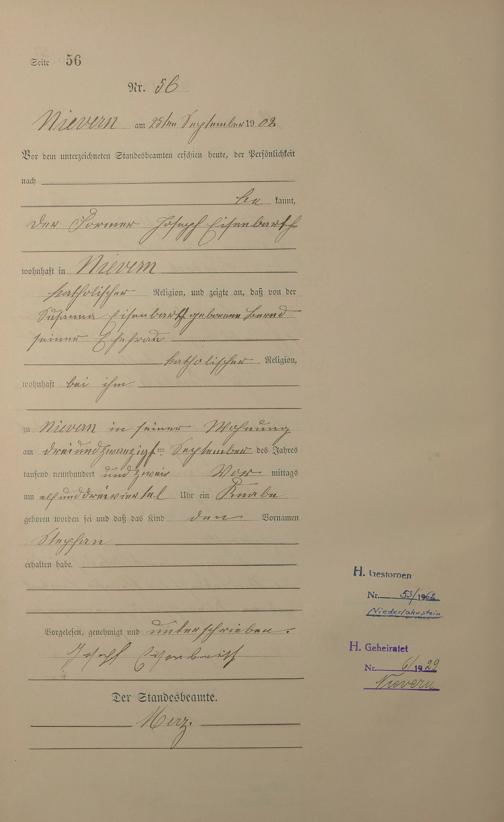 Seite 56
Nr. 56
Nievern am 25ten September 1902
Vor dem unterzeichneten Standesbeamten erschien heute, der Persönlichkeit
nach
be kannt,
der Former Joseph Eisenbarth
wohnhaft in Nievern
katholischer Religion, und zeigte an, daß von der
Susanna Eisenbarth geborene Bernd
seiner Ehefrau
katholischer Religion,
wohnhaft bei ihm
zu Nievern in seiner Wohnung
am dreiundzwanzigsten September des Jahres
tausend neunhundert und zwei Vor mittags
um elf und dreiviertel Uhr ein Knabe
geboren worden sei und daß das Kind den Vornamen
Stephan
erhalten habe.
Vorgelesen, genehmigt und unterschrieben.
Joseph Eisenbarth
Der Standesbeamte.
Merz.
H. Gestorben
Nr. 53/1966
Niederlahnstein
H. Geheiratet
Nr. 6/1929
Nievern